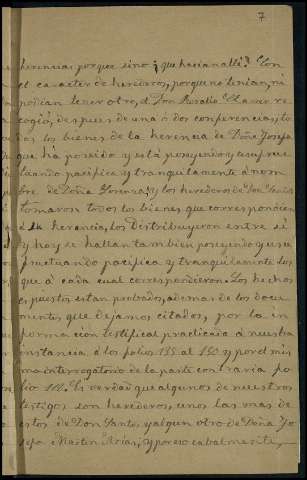 7
herencias porque sino ¿que hacian alli? Con
el caracter de herederos, porque no tenian, ni
podian tener otro, d. Don Rosalio Blanco re
cogió, despues de una ó dos conferencias, to
dos los bienes de la herencia de Doña Josefa
que há poseido y está poseyendo y usufruc
tuando pacifica y tranquilamente á nom
bre de Doña Lorenza; y los herederos de Don Santos
tomaron todos los bienes que correspondian
á su herencia, los distribuyeron entre sí
y hoy se hallan tambien poseyendo y usu
fructuando pacifica y tranquilamente los
que á cada cual correspondieron. Los hechos
espuestos estan probados, ademas de los docu
mentos que dejamos citados, por la in
formacion testifical practicada á nuestra
instancia á los folios 135 al 150 y por el mis
mo interrogatorio de la parte contraria fo
lio 112. Es verdad que algunos de nuestros
testigos son herederos, unos los mas de
estos de Don Santos y algun otro de Doña Jo
sefa Martin Arias, y por eso cabalmente,